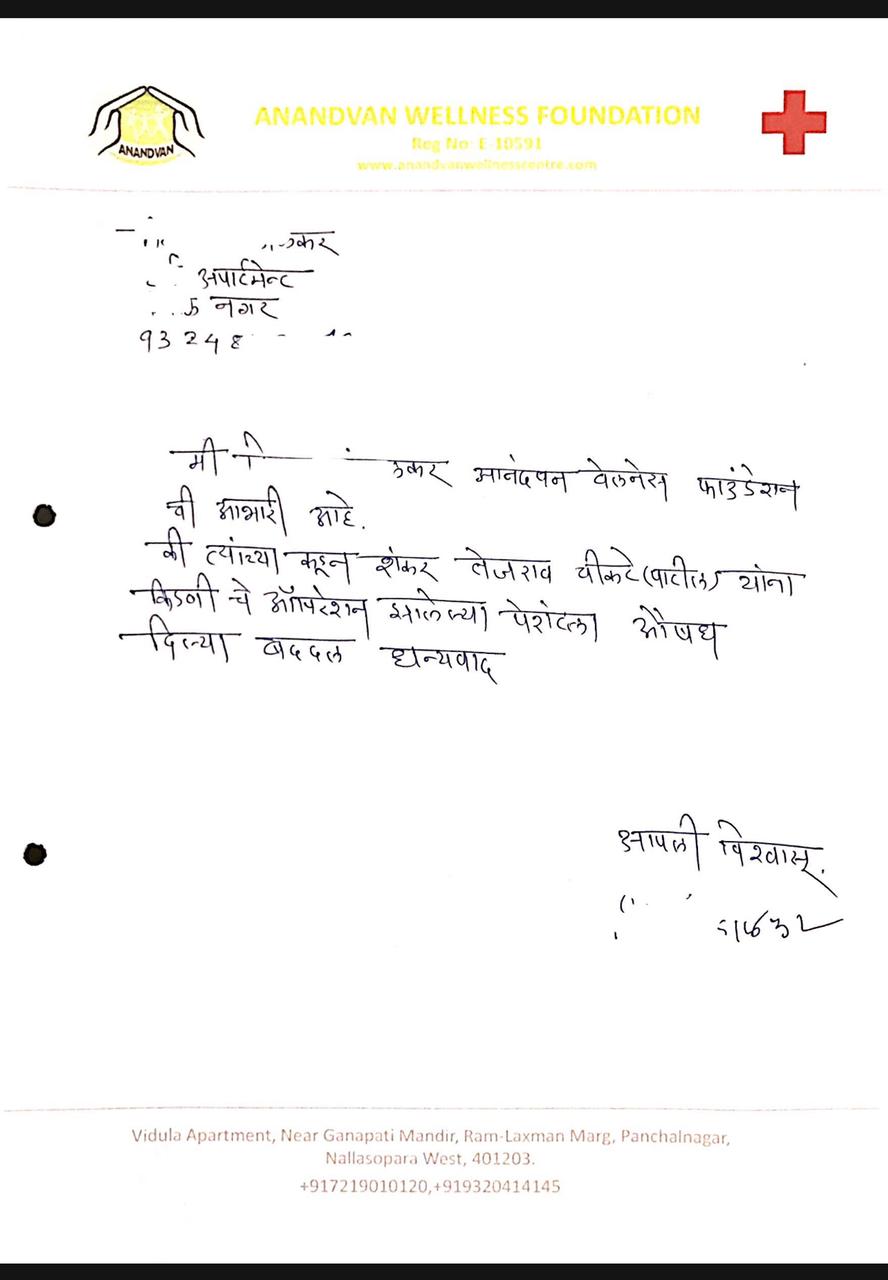 ANANDVAN
ANANDVAN WELLNESS FOUNDATION
Reg No: E-10591
www.anandvanwellnesscentre.com
कर
अपार्टमेन्ट
नगर
93248
मी कर आनंदवन वेलनेस फाउंडेशन
ची आभारी आहे.
की त्यांच्या कडून शंकर तेजराव चीकटे (पाटील) यांना
किडणी चे ऑपरेशन झालेल्या पेशंटला औषध
दिल्या बददल धन्यवाद
आपली विश्वासू.
Vidula Apartment, Near Ganapati Mandir, Ram-Laxman Marg, Panchalnagar,
Nallasopara West, 401203.
+917219010120,+919320414145